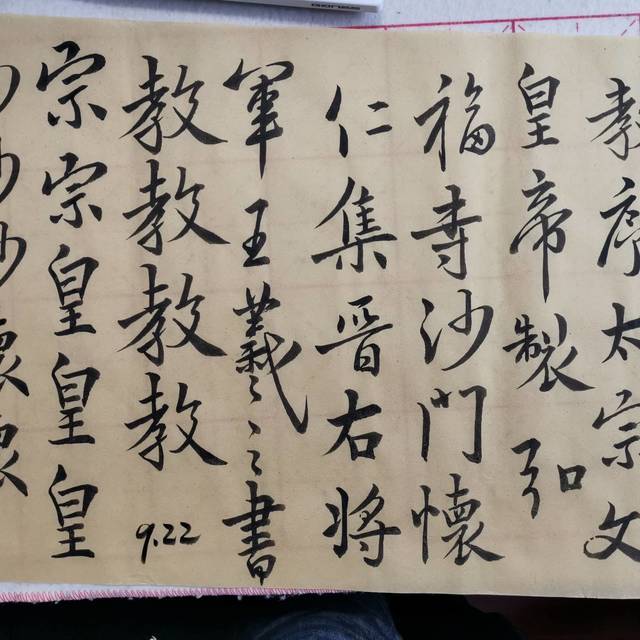 教序太宗文
皇帝製弘
福寺沙門懷
仁集晋右将
軍王羲之書
教教教教
9.22
宗宗皇皇皇
沙沙懷懷